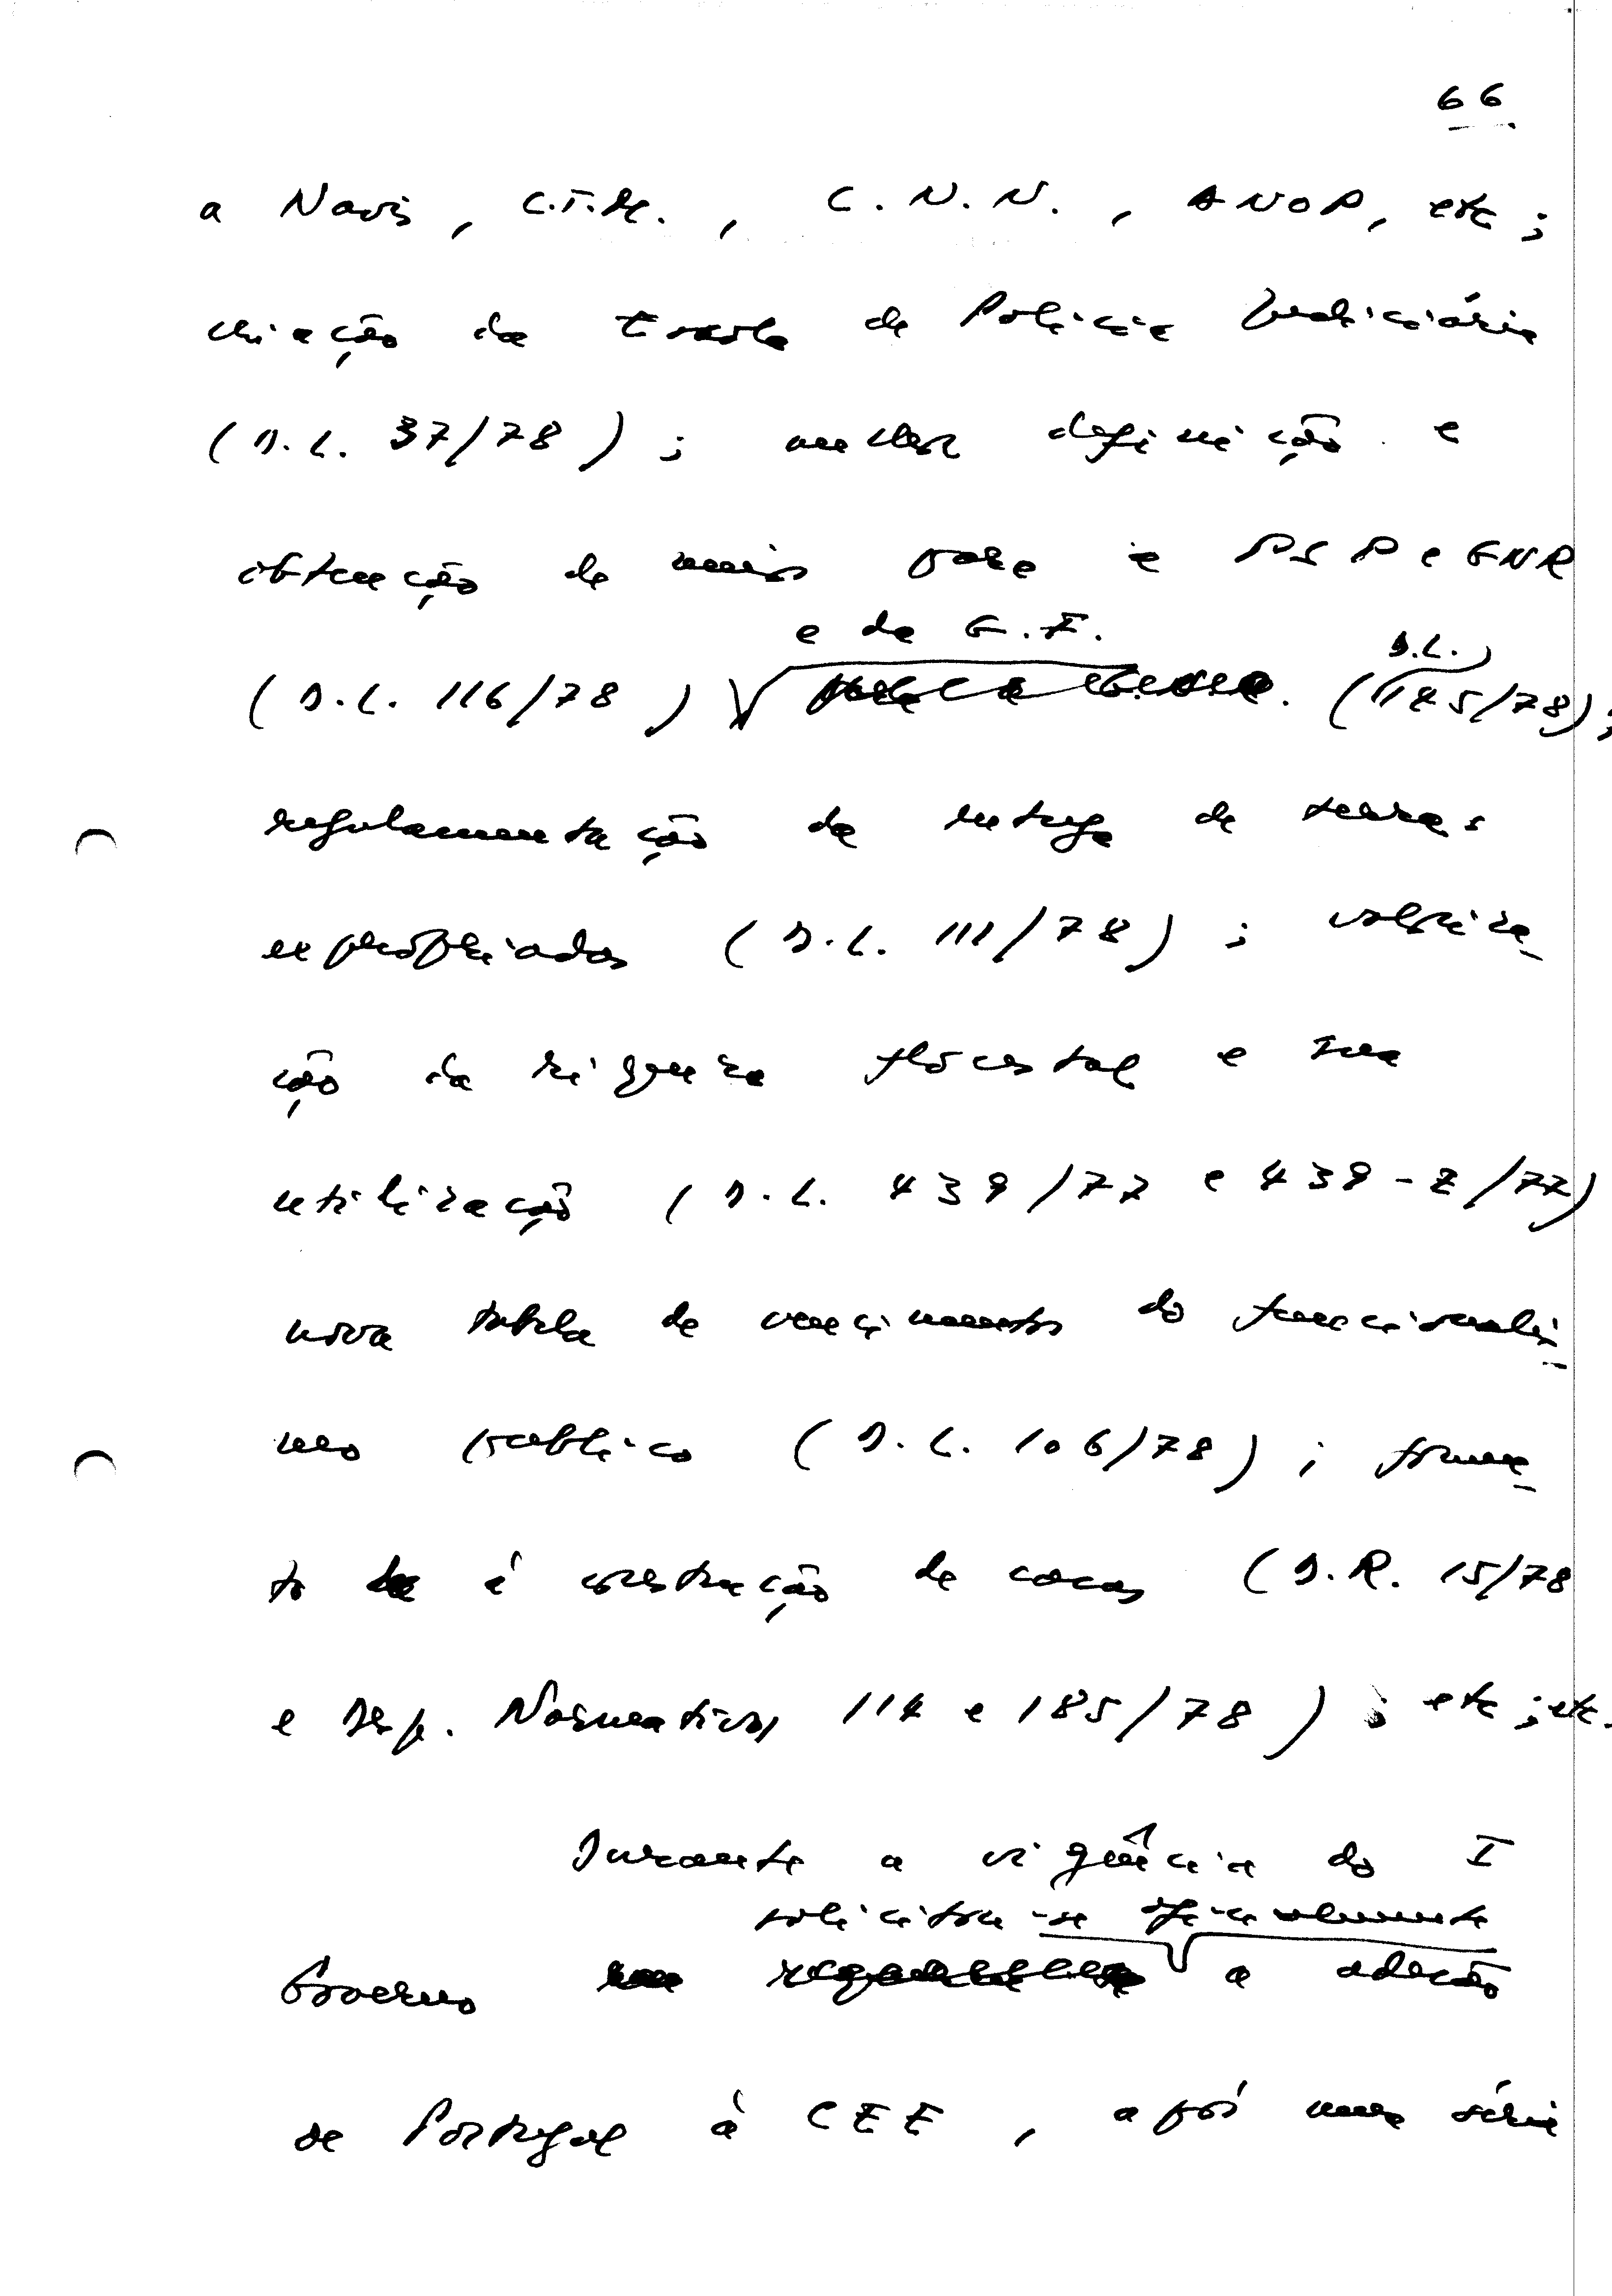 66
a Navis, C.T.M., C.N.N., ANOP, etc;
criação da Escola de Polícia Judiciária
(D.L. 37/78); melhor definição e
obtenção de meios para a PSP e GNR
e da G.F. D.L.
(D.L. 116/78) (145/78);
regulamentação da entrega de terras
expropriadas (D.L. 111/78); valoriza-
ção da riqueza florestal e sua
utilização (D.L. 439/77 e 439-E/77)
nova tabela de vencimentos do funcionalis-
mo público (D.L. 106/78); fomen-
to à construção de casas (D.R. 15/78
e Desp. Normativos 114 e 185/78); etc; etc.
Durante a vigência do I
solicitou-se oficialmente
Governo a adesão
de Portugal à CEE, após uma série